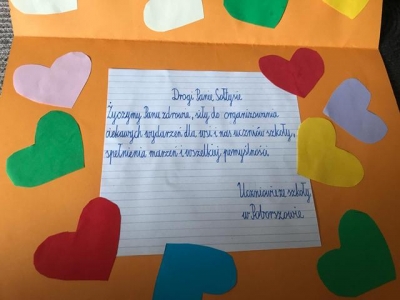 Drogi Panie Sołtysie
Życzymy Panu zdrowia, siły do organizowania
ciekawych wydarzeń dla wsi i nas uczniów szkoły,
spełnienia marzeń i wszelkiej pomyślności.
Uczniowie ze szkoły
w Poborszowie